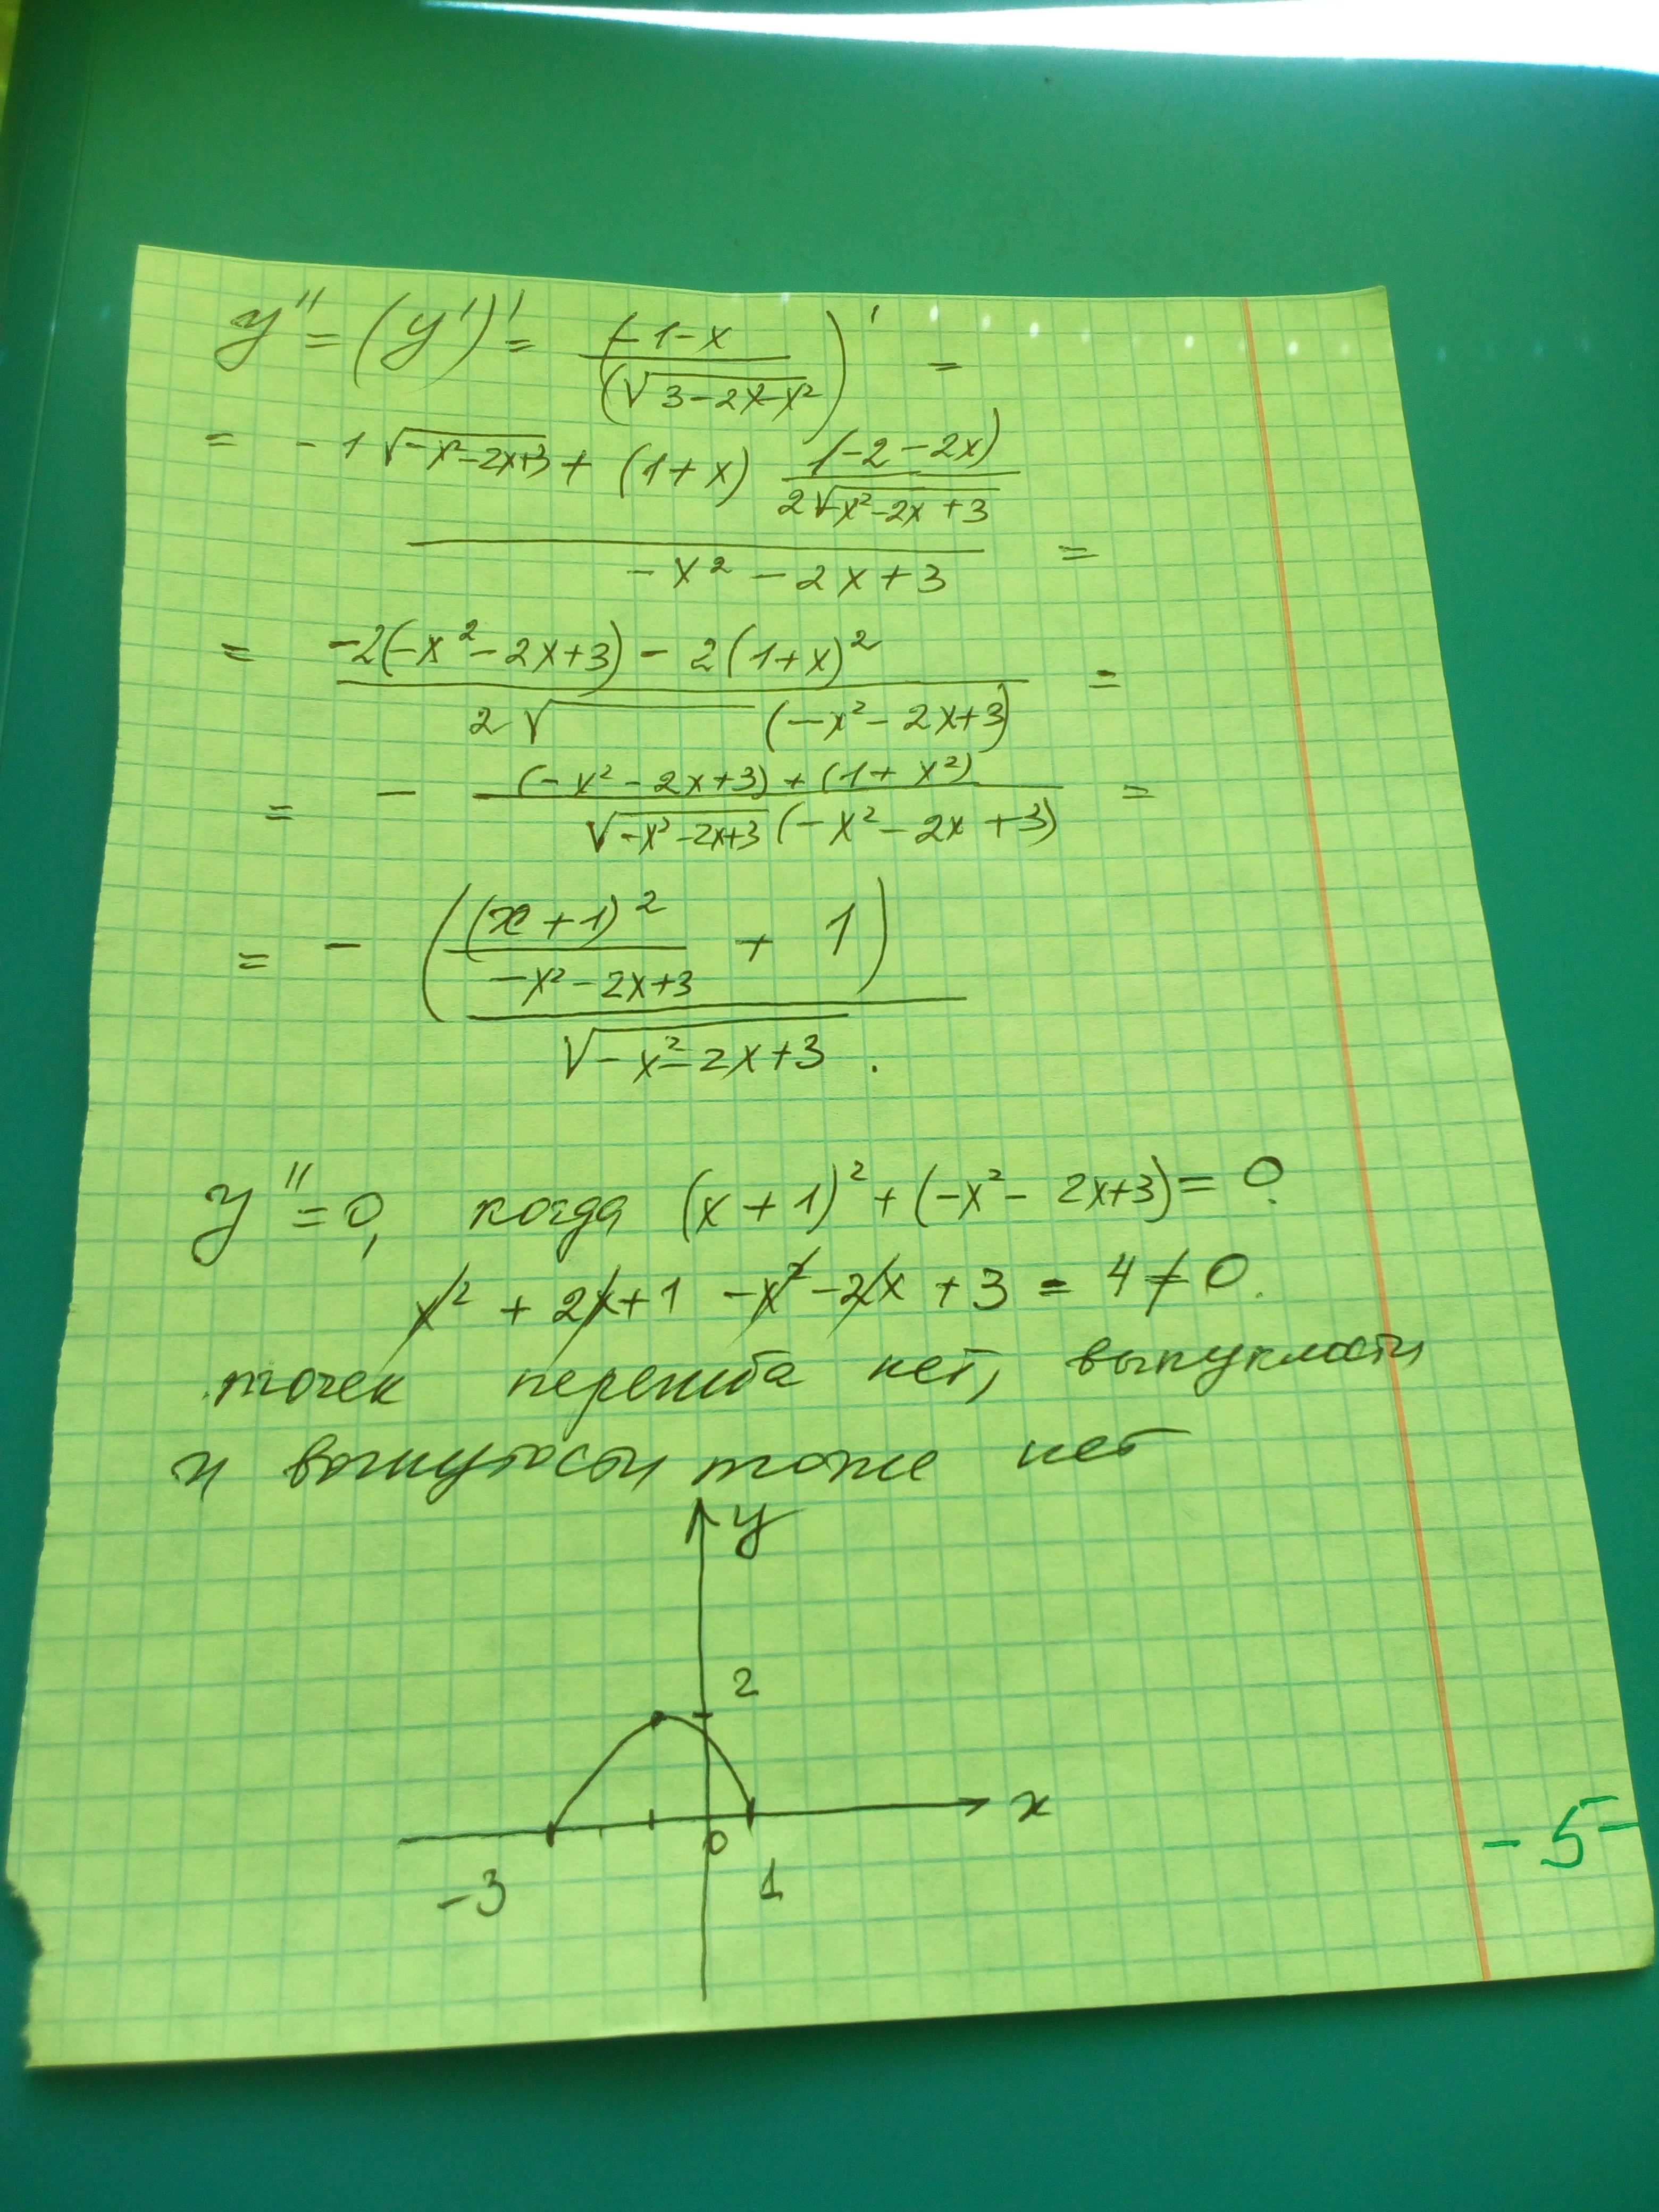 y'' = (y')' = (-1-x / (√3-2x-x²))' =
= -1√-x²-2x+3 + (1+x) (-2-2x) / 2√-x²-2x+3
-x²-2x+3 =
= -2(-x²-2x+3) - 2(1+x)² =
2√ (-x²-2x+3)
= - (-x²-2x+3)+(1+x²) =
√-x²-2x+3 (-x²-2x+3)
= - ((x+1)² / -x²-2x+3 + 1)
√-x²-2x+3 .
y''=0, когда (x+1)²+(-x²-2x+3)=0.
x²+2x+1-x²-2x+3=4≠0.
точек перегиба нет, выпуклости
и вогнутости тоже нет
y
2
x
0
-3 1
-5-